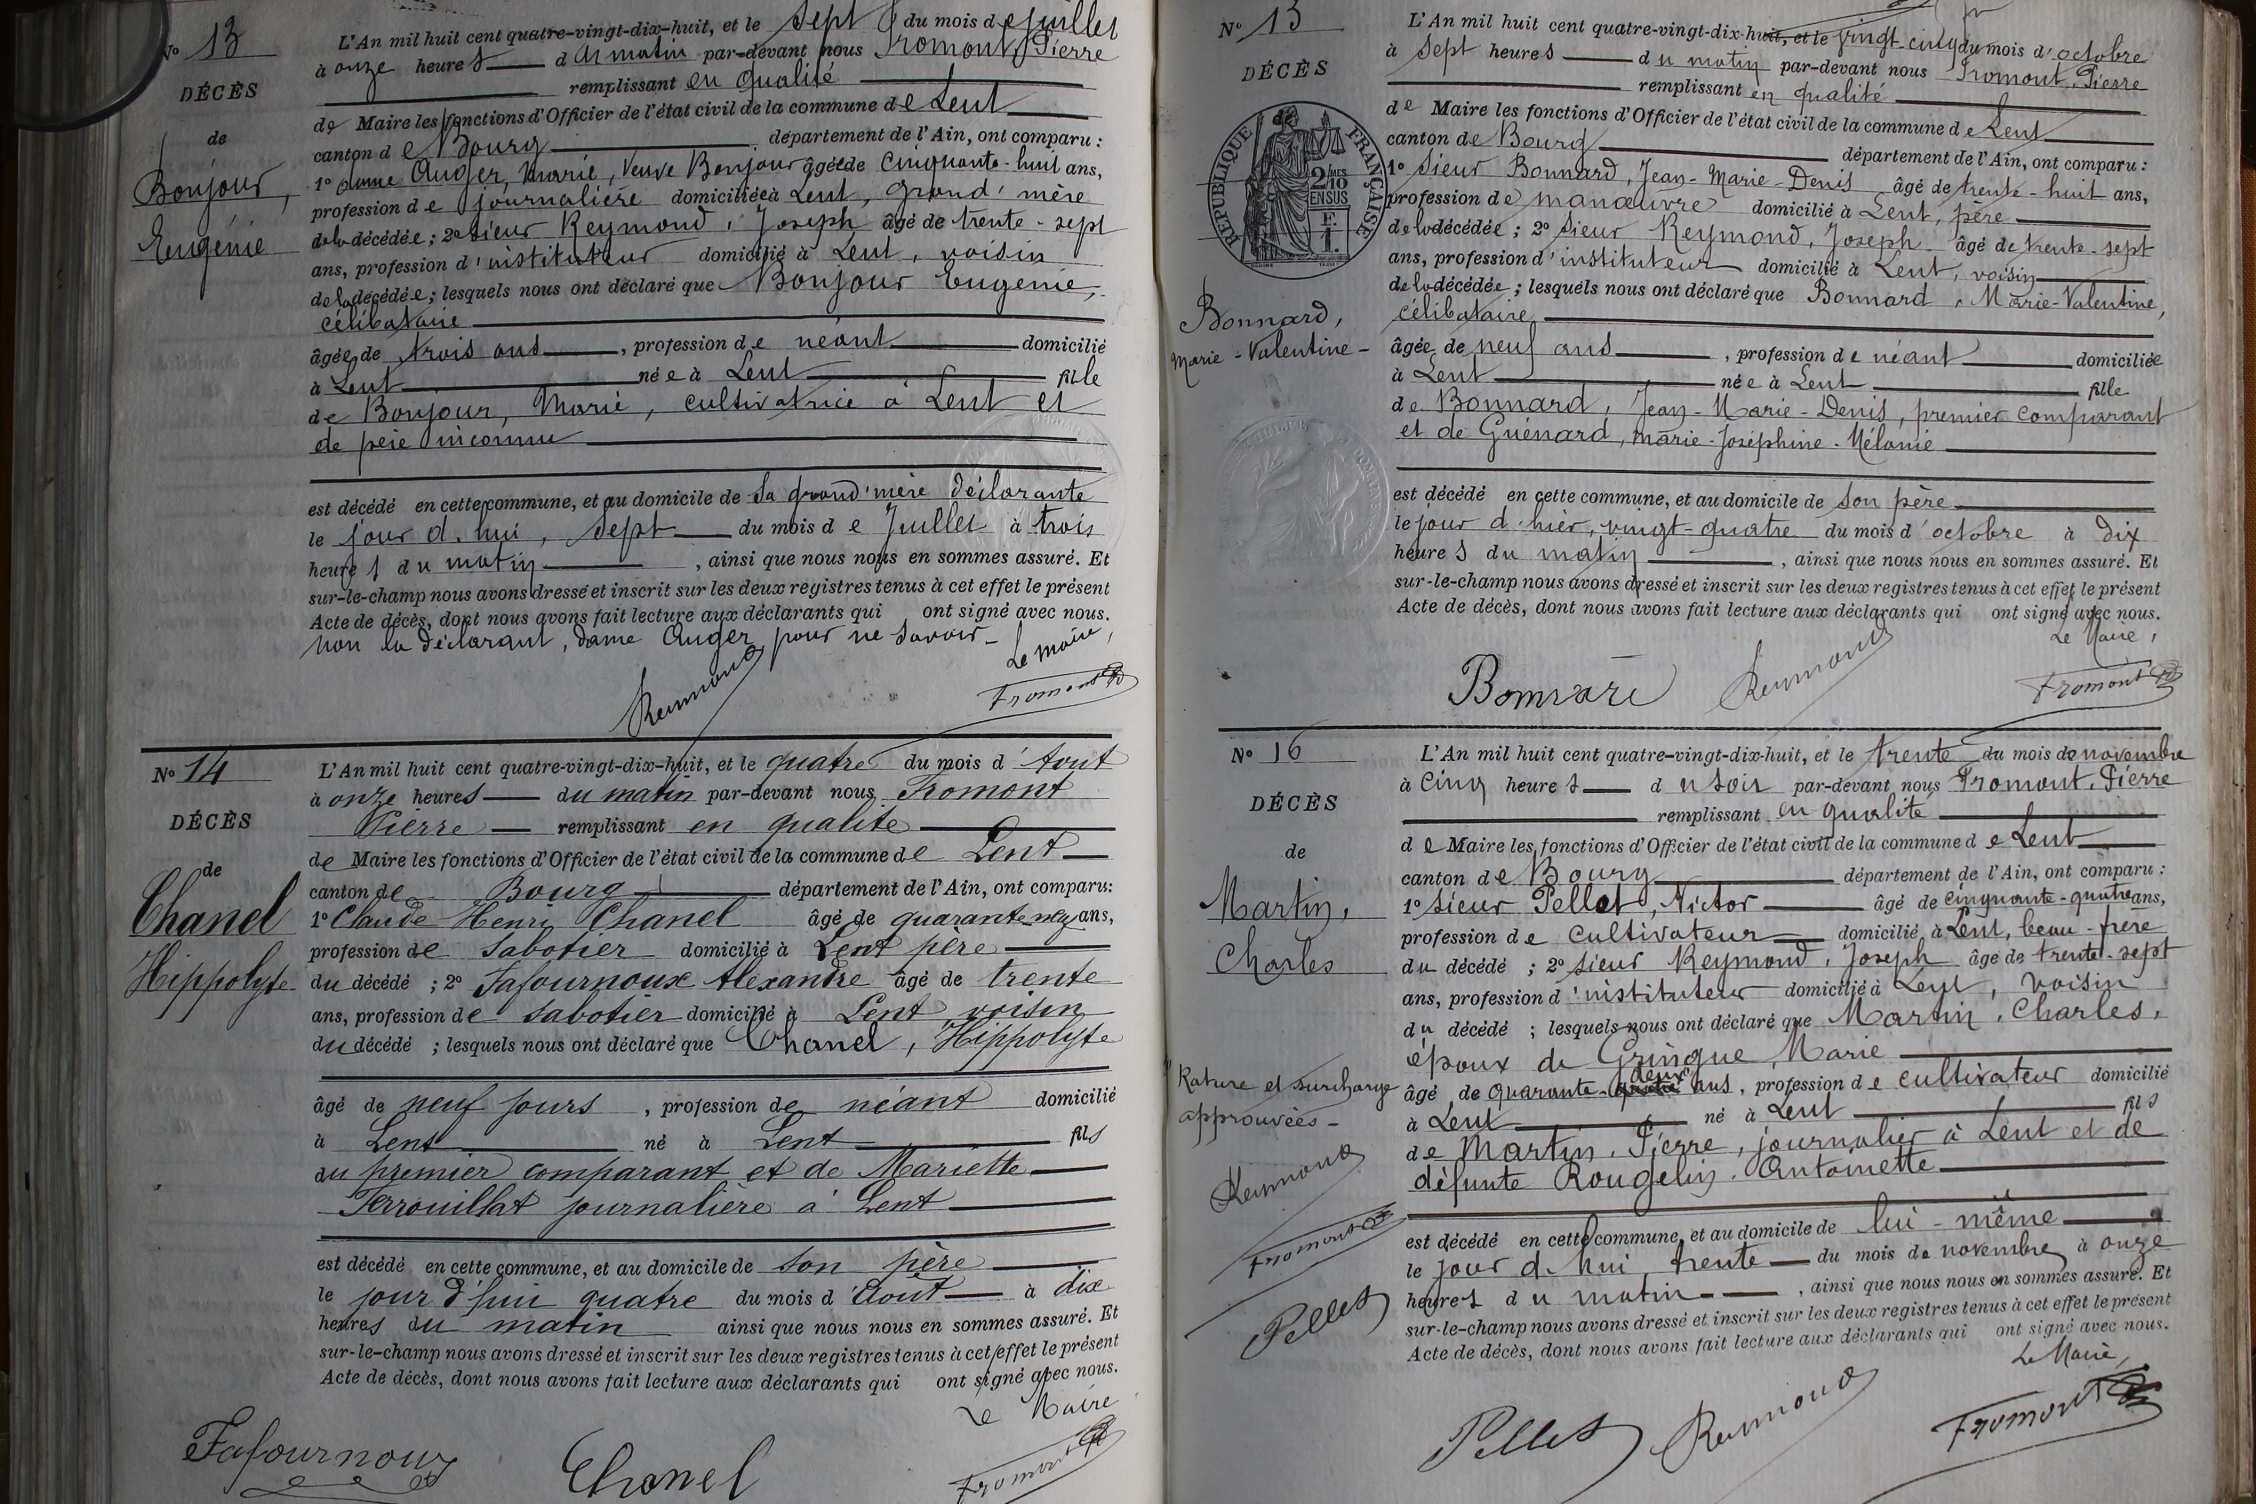 No 13
DÉCÈS
de
Bonjour,
Eugénie
L'An mil huit cent quatre-vingt-dix-huit, et le sept du mois de juillet
à onze heures du matin par-devant nous Fromont, Pierre
remplissant en qualité
de Maire les fonctions d'Officier de l'état civil de la commune de Lent
canton de Bourg département de l'Ain, ont comparu :
1º dame Auger, Marie, veuve Bonjour âgée de cinquante-huit ans,
profession de journalière domiciliée à Lent, grand'mère
de la décédée ; 2º sieur Reymond, Joseph âgé de trente-sept
ans, profession d'instituteur domicilié à Lent, voisin
de la décédée ; lesquels nous ont déclaré que Bonjour Eugénie,
célibataire
âgée de trois ans, profession de néant domicilié
à Lent née à Lent fille
de Bonjour, Marie, cultivatrice à Lent et
de père inconnu
est décédé en cette commune, et au domicile de sa grand'mère déclarante
le jour d'hui, sept du mois de Juillet à trois
heures du matin, ainsi que nous nous en sommes assuré. Et
sur-le-champ nous avons dressé et inscrit sur les deux registres tenus à cet effet le présent
Acte de décès, dont nous avons fait lecture aux déclarants qui ont signé avec nous.
non la déclarant, dame Auger, pour ne savoir-
Le Maire,
Reymond Fromont
No 14
DÉCÈS
de
Chanel
Hippolyte
L'An mil huit cent quatre-vingt-dix-huit, et le quatre du mois d'Aout
à onze heures du matin par-devant nous Fromont
Pierre remplissant en qualité
de Maire les fonctions d'Officier de l'état civil de la commune de Lent
canton de Bourg département de l'Ain, ont comparu:
1º Claude Henri Chanel âgé de quarante-neuf ans,
profession de sabotier domicilié à Lent père
du décédé ; 2º Lafournoux Alexandre âgé de trente
ans, profession de sabotier domicilié à Lent voisin
du décédé ; lesquels nous ont déclaré que Chanel, Hippolyte
âgé de neuf jours, profession de néant domicilié
à Lent né à Lent fils
du premier comparant et de Mariette
Perrouillat journalière à Lent
est décédé en cette commune, et au domicile de son père
le jour d'hui quatre du mois d'Aout à dix
heures du matin ainsi que nous nous en sommes assuré. Et
sur-le-champ nous avons dressé et inscrit sur les deux registres tenus à cet effet le présent
Acte de décès, dont nous avons fait lecture aux déclarants qui ont signé avec nous.
Le Maire
Lafournoux Chanel Fromont
No 15
DÉCÈS
de
RÉPUBLIQUE FRANÇAISE
2/10 EN SUS
Bonnard,
Marie-Valentine-
L'An mil huit cent quatre-vingt-dix-huit, et le vingt-cinq du mois d'octobre
à sept heures du matin par-devant nous Fromont, Pierre
remplissant en qualité
de Maire les fonctions d'Officier de l'état civil de la commune de Lent
canton de Bourg département de l'Ain, ont comparu :
1º sieur Bonnard, Jean-Marie-Denis âgé de trente-huit ans,
profession de manœuvre domicilié à Lent, père
de la décédée ; 2º sieur Reymond, Joseph âgé de trente-sept
ans, profession d'instituteur domicilié à Lent, voisin
de la décédée ; lesquels nous ont déclaré que Bonnard, Marie-Valentine,
célibataire,
âgée de neuf ans, profession de néant domiciliée
à Lent née à Lent fille
de Bonnard, Jean-Marie-Denis, premier comparant
et de Guénard, Marie-Joséphine-Mélanie
est décédé en cette commune, et au domicile de son père
le jour d'hier, vingt-quatre du mois d'octobre à dix
heures du matin, ainsi que nous nous en sommes assuré. Et
sur-le-champ nous avons dressé et inscrit sur les deux registres tenus à cet effet le présent
Acte de décès, dont nous avons fait lecture aux déclarants qui ont signé avec nous.
Le Maire,
Bonnard Reymond Fromont
No 16
DÉCÈS
de
Martin,
Charles
L'An mil huit cent quatre-vingt-dix-huit, et le trente du mois de novembre
à cinq heures du soir par-devant nous Fromont, Pierre
remplissant en qualité
de Maire les fonctions d'Officier de l'état civil de la commune de Lent
canton de Bourg département de l'Ain, ont comparu :
1º sieur Pellet, Victor âgé de cinquante-quatre ans,
profession de cultivateur domicilié à Lent, beau-frère
du décédé ; 2º sieur Reymond, Joseph âgé de trente-sept
ans, profession d'instituteur domicilié à Lent, voisin
du décédé ; lesquels nous ont déclaré que Martin, Charles,
époux de Gringue Marie
âgé de quarante-deux ans, profession de cultivateur domicilié
à Lent né à Lent fils
de Martin, Pierre, journalier à Lent et de
défunte Rougelin, Antoinette
est décédé en cette commune, et au domicile de lui-même
le jour d'hui, trente du mois de novembre à onze
heures du matin, ainsi que nous nous en sommes assuré. Et
sur-le-champ nous avons dressé et inscrit sur les deux registres tenus à cet effet le présent
Acte de décès, dont nous avons fait lecture aux déclarants qui ont signé avec nous.
Le Maire,
Rature et surcharge
approuvées-
Reymond
Fromont
Pellet
Pellet Reymond Fromont